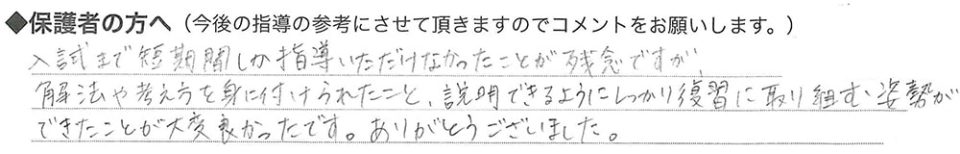 ◆保護者の方へ（今後の指導の参考にさせて頂きますのでコメントをお願いします。）
入試まで短期間しか指導いただけなかったことが残念ですが、
解法や考え方を身に付けられたこと、説明できるようにしっかり復習に取り組む姿勢が
できたことが大変良かったです。ありがとうございました。